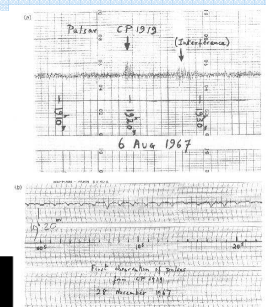 (a)
Pulsar CP 1919
(Interference)
1910 1920 1930
6 AUG 1967
(b)
19ʰ 20ᵐ
10ˢ 20ˢ
First observation of pulses
from CP 1919
28 November 1967